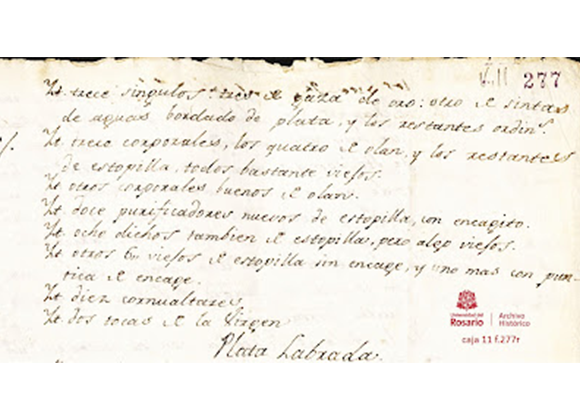 V.11 277
Yt. trece singulos: tres de gaza de oro: otro de sintas
de aguas, bordado de plata, y los restantes ordins.
Yt. trece corporales, los quatro de olan, y los restantes
de estopilla, todos bastante viejos.
Yt. otros corporales buenos de olan.
Yt. doce purificadores nuevos de estopilla, con encagito.
Yt. ocho dichos tambien de estopilla, pero algo viejos.
Yt. otros 6, viejos de estopilla sin encage, y uno mas con pun-
tica de encage.
Yt. diez cornualtares
Yt. dos tocas de la Virgen
Plata Labrada.
Universidad del
Rosario
Archivo
Histórico
caja 11 f.277r